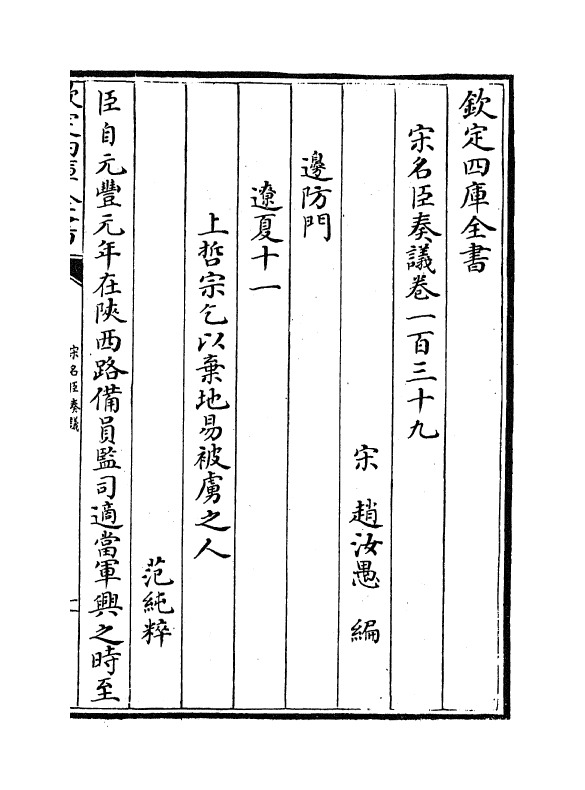 欽定四庫全書
宋名臣奏議卷一百三十九
宋 趙汝愚 編
邊防門
遼夏十一
上哲宗乞以棄地易被虜之人
范純粹
臣自元豐元年在陜西路備員監司適當軍興之時至
欽定四庫全書
宋名臣奏議